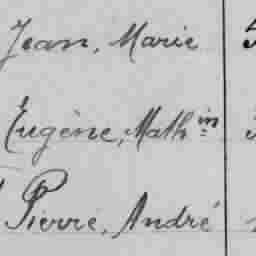 Jean, Marie
Eugène, Mathin
Pierre, André